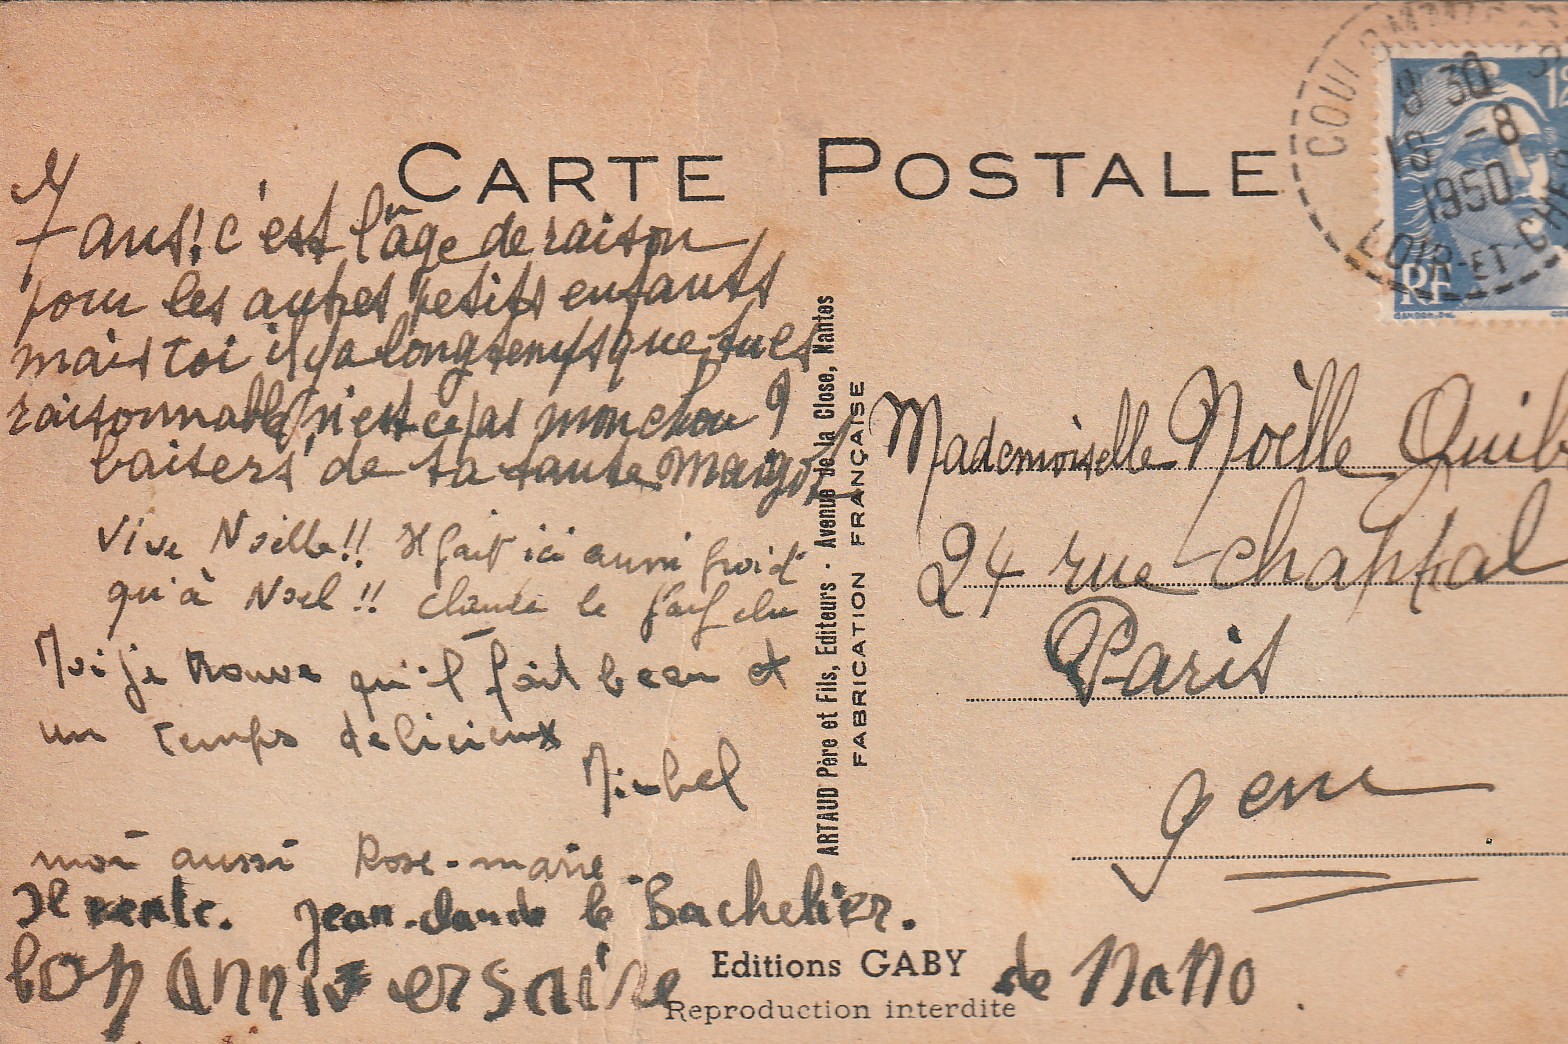 CARTE POSTALE
7 ans! c'est l'âge de raison
pour les autres petits enfants
mais toi il y a longtemps que tu es
raisonnable n'est ce pas mon chou ?
baisers de ta tante Margot
Vive Noëlle!! Il fait ici aussi froid
qu'à Noël!! Claude le
Moi je trouve qu'il fait beau et
un temps délicieux
Michel
moi aussi Rose-marie.
Il vente. Jean-claude le Bachelier.
bon anniversaire de NaNo.
ARTAUD Père et Fils, Editeurs · Avenue de la Close, Nantes
FABRICATION FRANÇAISE
Editions GABY
Reproduction interdite
8 30
-8
1950
LOIR-ET-CHER
RF
12
GANDON.DEL
Mademoiselle Noëlle Quib
24 rue Chaptal
Paris
9em